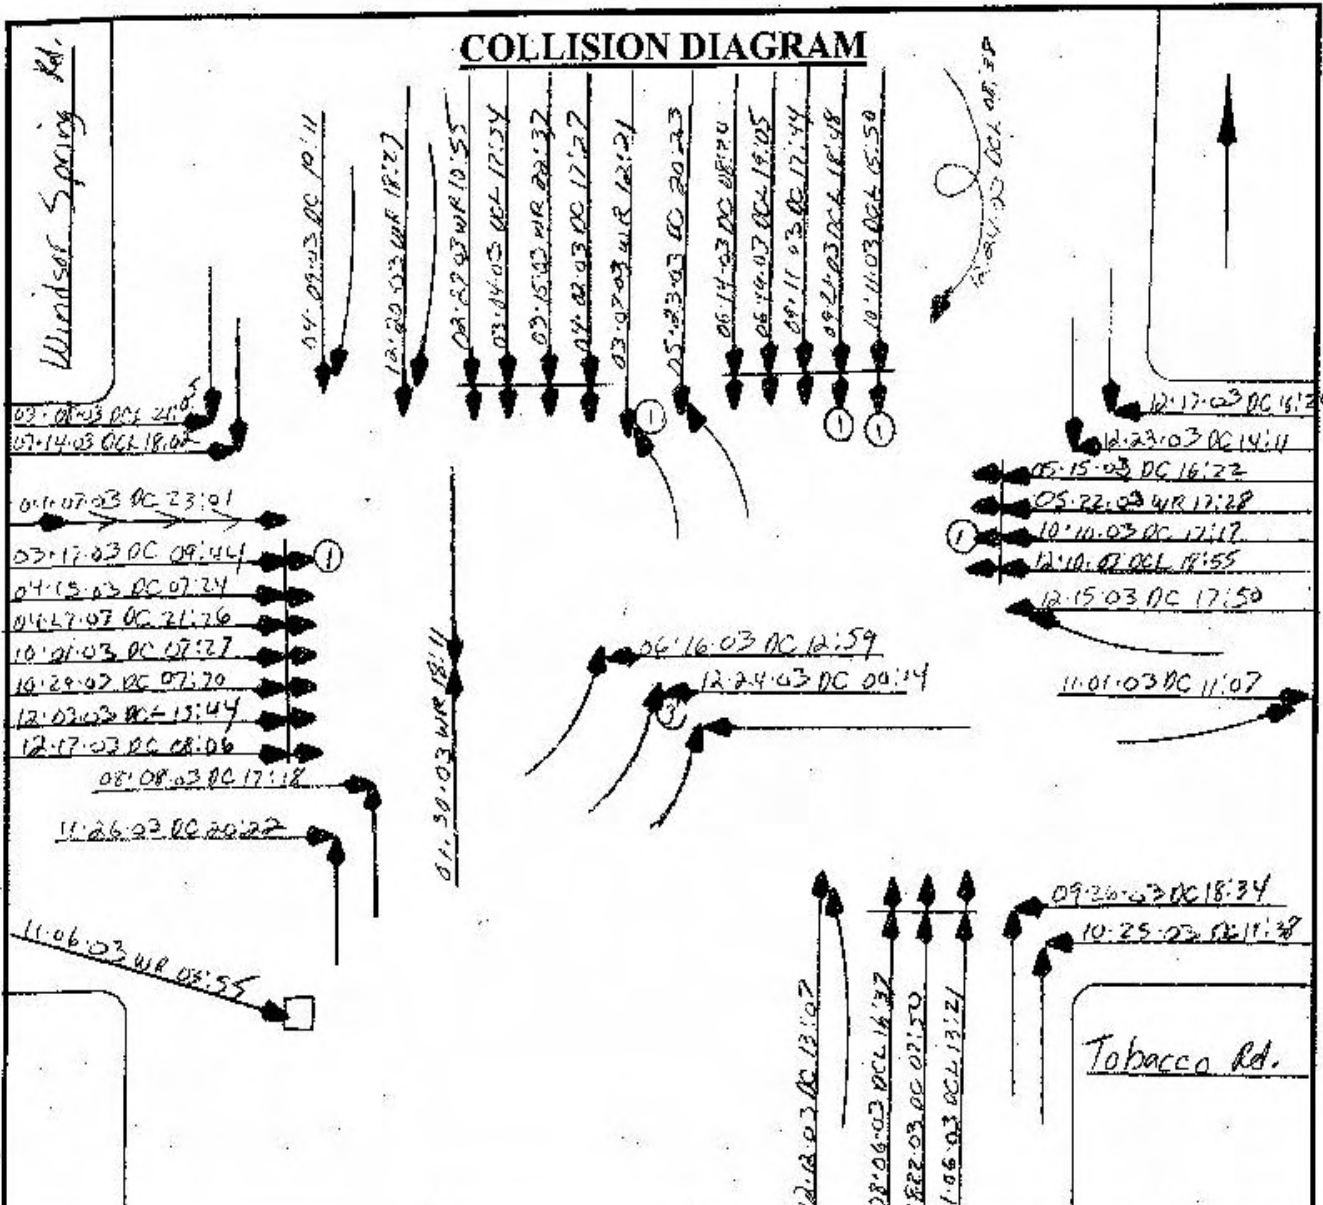 COLLISION DIAGRAM
Windsor Spring Rd.
04-09-03 DC 19:11
12-20-03 WR 18:27
02-27-03 WR 10:55
03-04-03 DCL 17:54
03-15-03 WR 22:37
04-02-03 DC 17:27
03-07-03 WR 12:21
05-23-03 DC 20:23
06-14-03 DC
DCL 19:05
09-11-03 DC 17:44
09-21-03 DCL 18:48
10-11-03 DCL 15:50
12-24-03 DCL 08:38
DCL
07-14-03 DCL
DC 23:01
03-17-03 DC 09:44
04-15-03 DC 07:24
DC 21:26
10-01-03 DC 07:27
DC
12-03-03 DCL 15:44
12-17-03 DC 08:06
08-08-03 DC 17:18
11-26-03 DC 20:22
11-06-03 WR 03:55
01-30-03 WR 18:11
1
1
1
1
1
3
12-17-03 DC
12-23-03 DC 14:11
05-15-03 DC 16:22
05-22-03 WR 17:28
10-10-03 DC 17:17
DCL 18:55
12-15-03 DC 17:50
06-16-03 DC 12:59
12-24-03 DC 00:14
11-01-03 DC 11:07
09-26-03 DC 18:34
10-25-03 DC
12-12-03 DC 13:07
08-06-03 DCL 16:37
22-03 DC 07:50
06-03 DCL 13:21
Tobacco Rd.